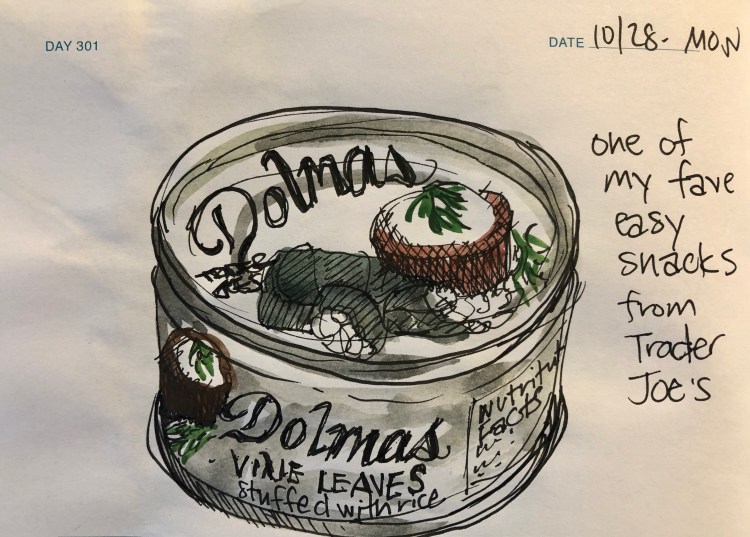 DAY 301
DATE 10/28. MON
one of
my fave
easy
snacks
from
Trader
Joe's
Dolmas
TRADER
JOE'S
Dolmas
VINE LEAVES
stuffed with rice
Nutrition
Facts